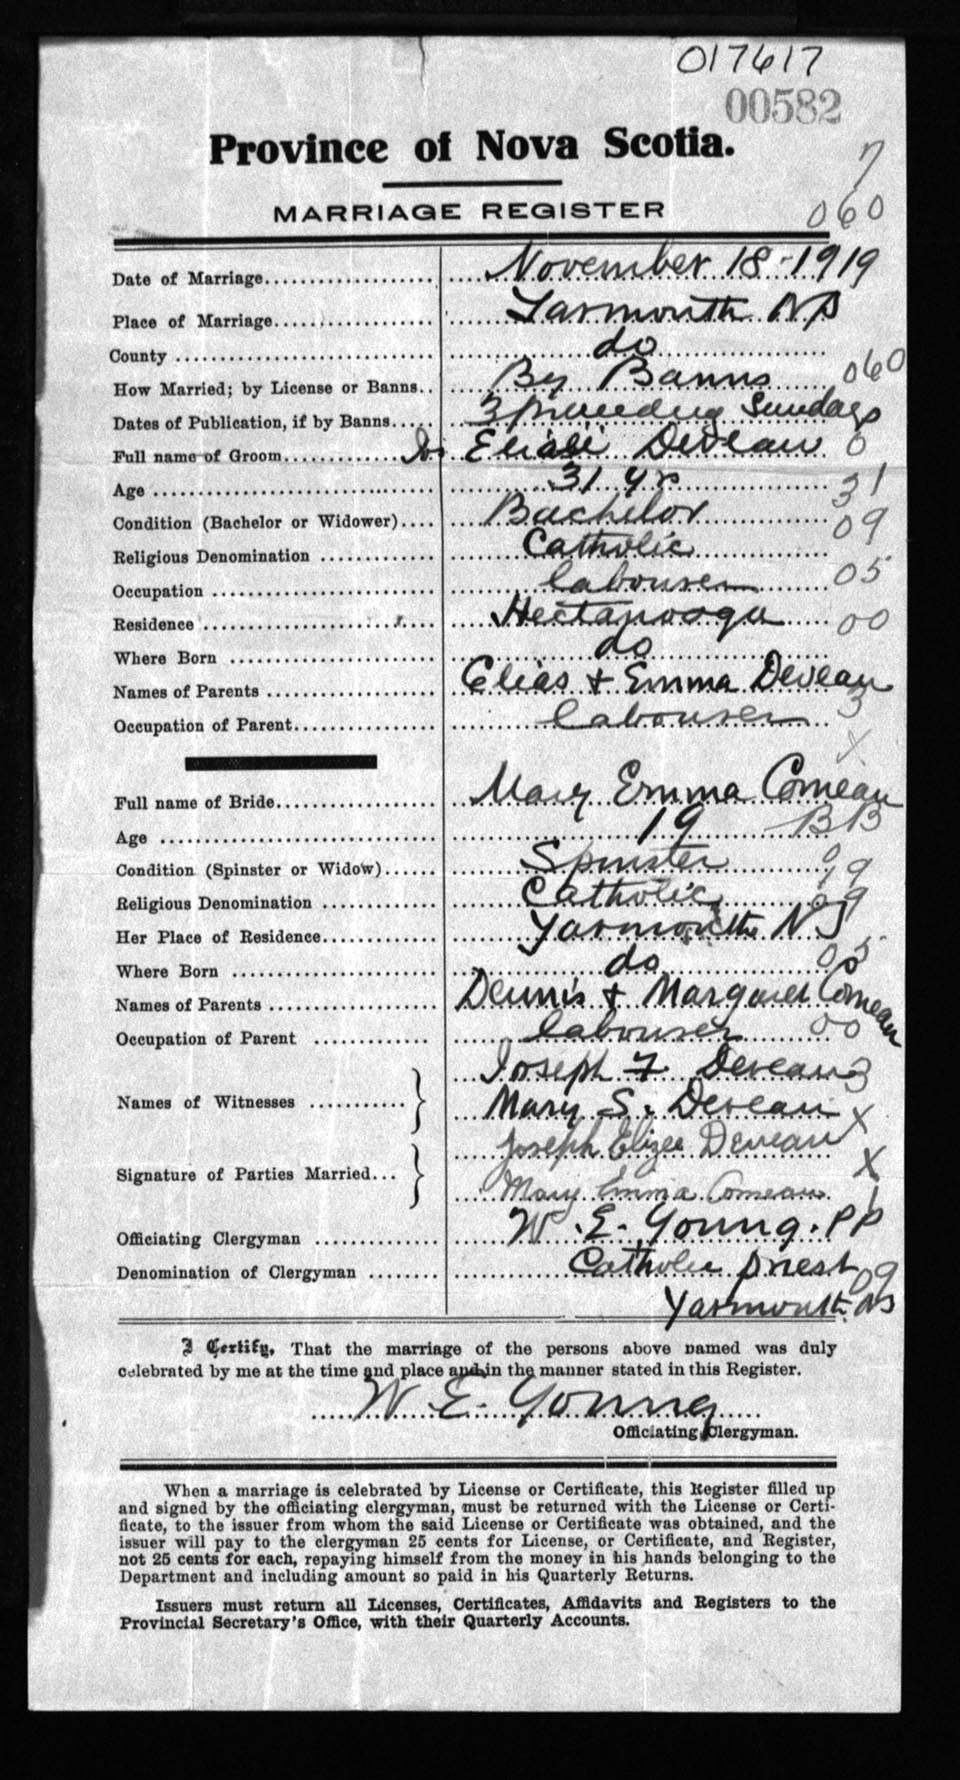 017617
00582
Province of Nova Scotia.
7
MARRIAGE REGISTER 060
Date of Marriage November 18 - 1919
Place of Marriage Yarmouth NS
County do
How Married; by License or Banns By Banns 060
Dates of Publication, if by Banns 3 preceding Sundays
Full name of Groom Jos Eliasé Deveau 0
Age 31 yrs 31
Condition (Bachelor or Widower) Bachelor 09
Religious Denomination Catholic
Occupation labourer 05
Residence Hectanooga 00
Where Born do
Names of Parents Elias & Emma Deveau
Occupation of Parent labourer 3
X
Full name of Bride Mary Emma Comeau
Age 19 BB
Condition (Spinster or Widow) Spinster 19
Religious Denomination Catholic 09
Her Place of Residence Yarmouth NS
Where Born do 05
Names of Parents Dennis & Margaret Comeau
Occupation of Parent labourer 00
Joseph F Deveau 3
Names of Witnesses
Mary S. Deveau X
Joseph Elizee Deveau
Signature of Parties Married X
Mary Emma Comeau
Officiating Clergyman W. E. Young. PP 1
Denomination of Clergyman Catholic priest 09
Yarmouth NS
I Certify, That the marriage of the persons above named was duly
celebrated by me at the time and place and in the manner stated in this Register.
W. E. Young
Officiating Clergyman.
When a marriage is celebrated by License or Certificate, this Register filled up
and signed by the officiating clergyman, must be returned with the License or Certi-
ficate, to the issuer from whom the said License or Certificate was obtained, and the
issuer will pay to the clergyman 25 cents for License, or Certificate, and Register,
not 25 cents for each, repaying himself from the money in his hands belonging to the
Department and including amount so paid in his Quarterly Returns.
Issuers must return all Licenses, Certificates, Affidavits and Registers to the
Provincial Secretary's Office, with their Quarterly Accounts.